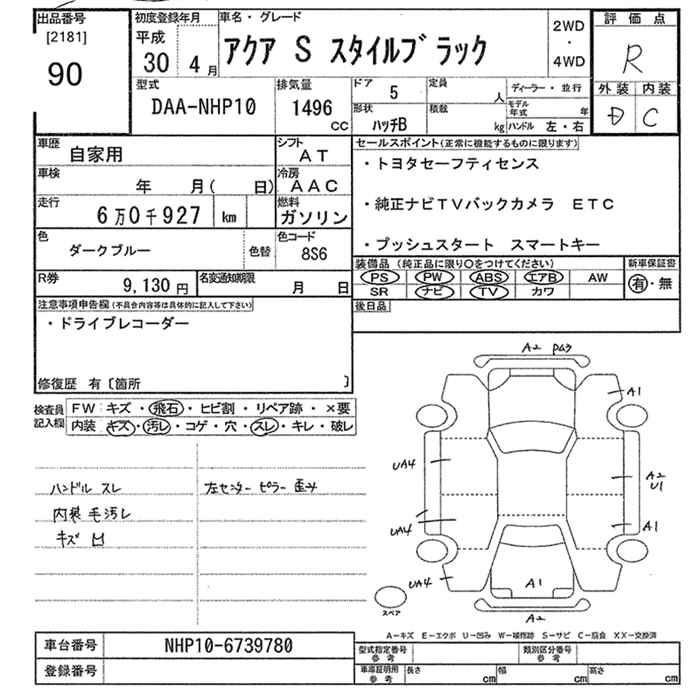 出品番号 初度登録年月 車名・グレード 評価点
[2181] 平成 2WD
90 30 4月 アクア S スタイルブラック ・ R
4WD
型式 排気量 ドア 5 定員 人 ディーラー・並行 外装 内装
DAA-NHP10 1496 cc 形状 ハッチB 積数 kg モデル年式 年 D C
ハンドル 左・右
車歴 自家用 シフト AT セールスポイント(正常に機能するものに限ります)
車検 年 月( 日) 冷房 AAC ・トヨタセーフティセンス
走行 6万0千927 km 燃料 ガソリン ・純正ナビTVバックカメラ ETC
色 ダークブルー 色替 色コード 8S6 ・プッシュスタート スマートキー
R券 9,130円 名変通知期限 月 日 装備品(純正品に限り○をつけてください) 新車保証書
PS PW ABS エアB AW 有・無
SR ナビ TV カワ
注意事項申告欄(不具合内容等は具体的に記入して下さい) 後日品
・ドライブレコーダー
修復歴 有〔箇所 〕
検査員記入欄 FW キズ・飛石・ヒビ割・リペア跡・×要
内装 キズ・汚レ・コゲ・穴・スレ・キレ・破レ
ハンドル スレ 左センターピラー 歪み
内装 毛汚レ
キズ 凹
A2
A1
UA4 A2
U1
UA4 A1
UA4 A1
A2
スペア
A-キズ E-エクボ U-凹み W-補修跡 S-サビ C-腐食 XX-交換済
車台番号 NHP10-6739780 型式指定番号 参考 類別区分番号 参考
登録番号 車庫証明用 参考 長さ cm 幅 cm 高さ cm